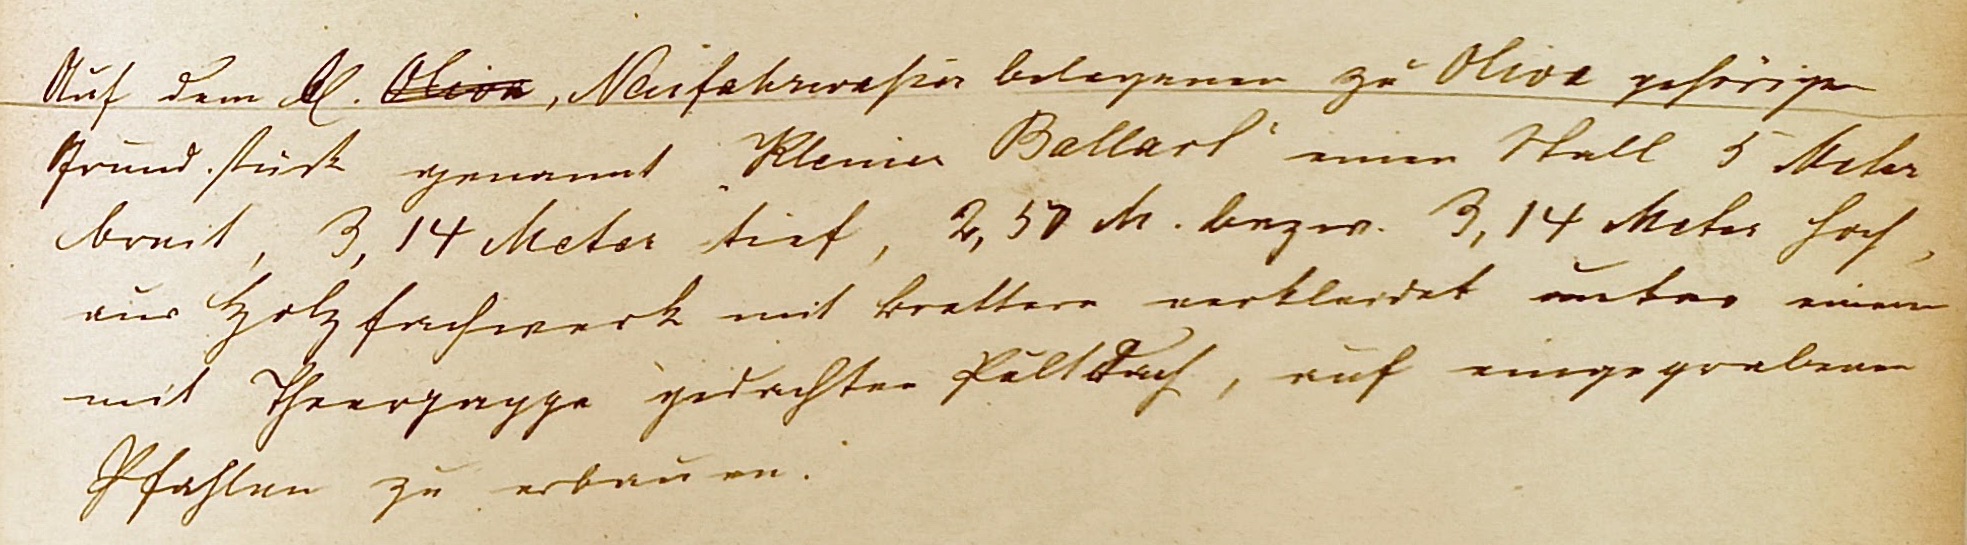 Auf dem Kl. Oliva, Neufahrwasser belegenen zu Oliva gehörigen
Grundstück genannt "Kleiner Ballast" einen Stall 5 Meter
breit, 3,14 Meter tief, 2,50 M. bezw. 3,14 Meter hoch,
aus Holzfachwerk mit Brettern verkleidet unter einem
mit Theerpappe gedachten PultDach, auf eingegrabenen
Pfahlen zu erbauen.